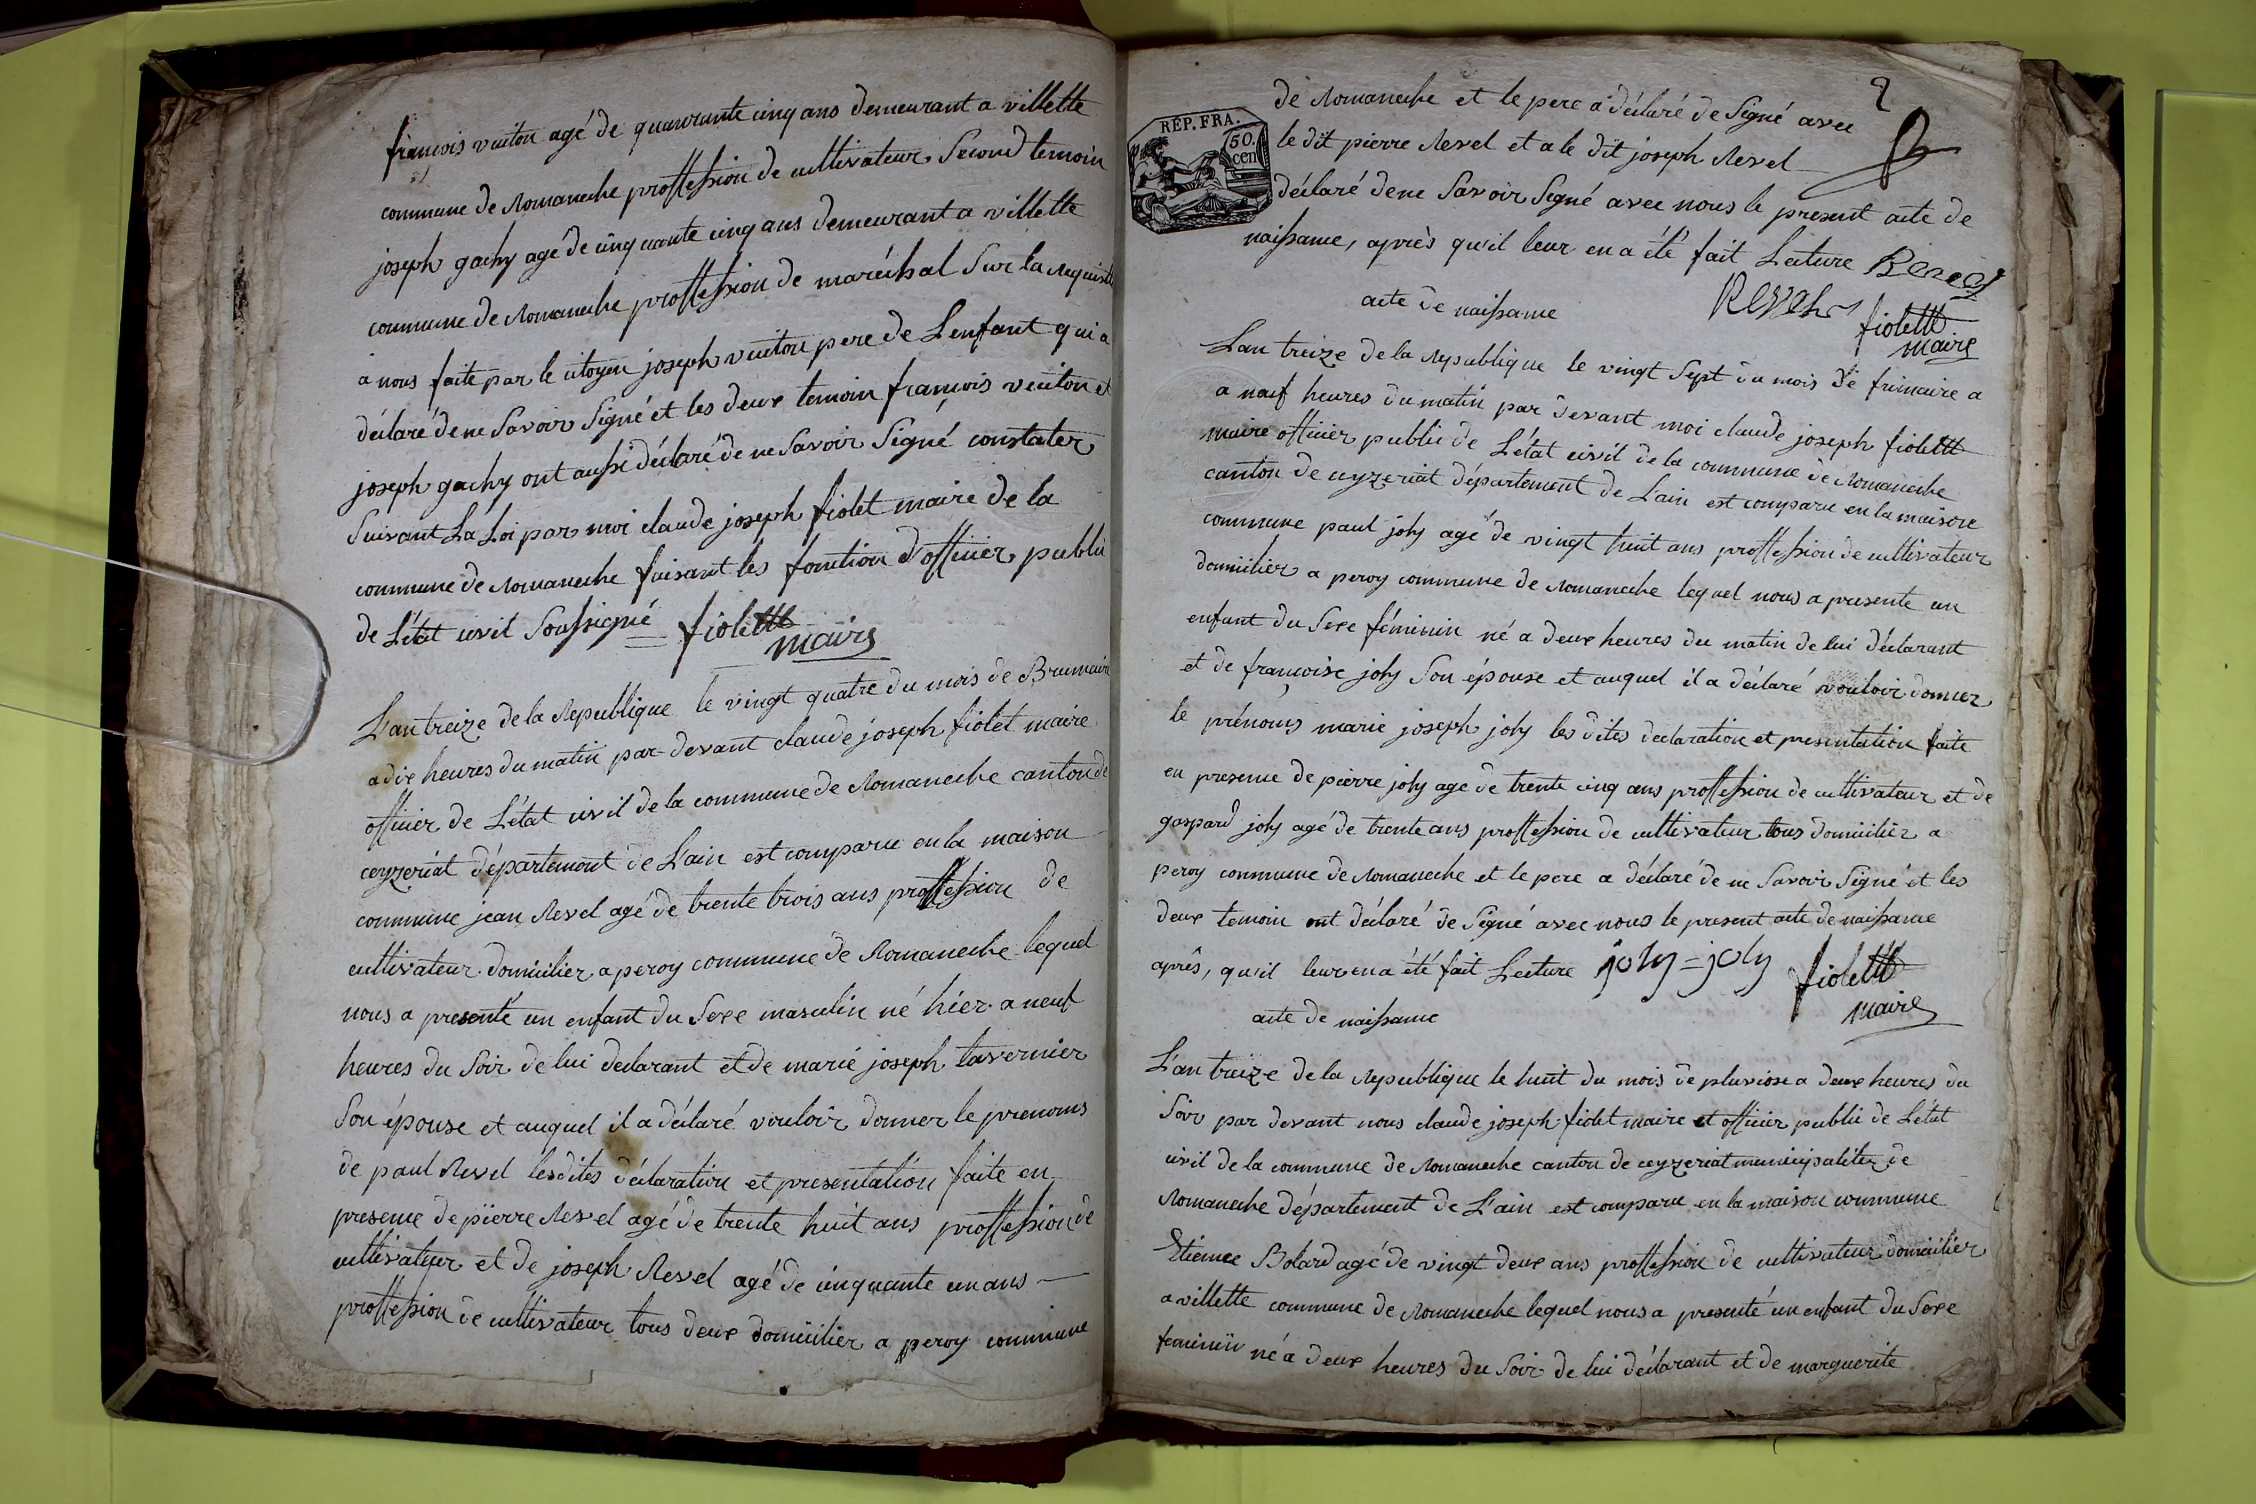 françois vuiton agé de quarante cinq ans demeurant a villette
commune de Romaneche proffession de cultivateur Second temoin
joseph gachy agé de cinquante cinq ans demeurant a villette
commune de Romaneche proffession de maréchal Sur la requisition
a nous faite par le citoyen joseph vuiton pere de L'enfant qui a
déclaré de ne Savoir Signé et les deux temoin françois vuiton et
joseph gachy ont aussi déclaré de ne Savoir Signé constater
Suivant La Loi par moi claude joseph fiolet maire de la
commune de Romaneche faisant les fonction d'officier public
de L'état civil Soussigné = fiolettt
maire
L'an treize de la Republique le vingt quatre du mois de Brumaire
a dix heures du matin par-devant claude joseph fiolet maire
officier de L'état civil de la commune de Romaneche canton de
ceyzeriat département de L'ain est comparu en la maison
commune jean Revel agé de trente trois ans proffession de
cultivateur domicilier a peroy commune de Romaneche lequel
nous a presenté un enfant du Sexe masculin né hier a neuf
heures du Soir de lui declarant et de marie joseph tavernier
Son épouse et auquel il a déclaré vouloir donner le prenoms
de paul Revel lesdites déclaration et presentation faite en
presence de pierre Revel agé de trente huit ans proffession de
cultivateur et de joseph Revel agé de cinquante un ans
proffession de cultivateur tous deux domicilier a peroy commune
2
REP. FRA.
50.
cen
de Romaneche et le pere a déclaré de Signé avec
le dit pierre Revel et a le dit joseph Revel
déclaré de ne Savoir Signé avec nous le present acte de
naissance, après qu'il leur en a été fait Lecture
Revel
fiolettt
maire
acte de naissance
L'an treize de la Republique le vingt Sept du mois de frimaire a
a neuf heures du matin par devant moi claude joseph fiolettt
maire officier public de L'état civil de la commune de Romaneche
canton de ceyzeriat département de L'ain est comparu en la maison
commune paul joly agé de vingt huit ans proffession de cultivateur
domicilier a peroy commune de Romaneche lequel nous a presente un
enfant du Sexe féminin né a deux heures du matin de lui déclarant
et de françoise joly Son épouse et auquel il a déclaré vouloir donner
le prénoms marie joseph joly les dites declaration et presentation faite
en presence de pierre joly agé de trente cinq ans proffession de cultivateur et de
gaspard joly agé de trente ans proffession de cultivateur tous domicilier a
peroy commune de Romaneche et le pere a déclaré de ne Savoir Signé et les
deux temoin ont déclaré de Signé avec nous le present acte de naissance
après, qu'il leur en a été fait Lecture joly = joly fiolettt
maire
acte de naissance
L'an treize de la Republique le huit du mois de pluviose a deux heures du
Soir par devant nous claude joseph fiolet maire et officier public de L'état
civil de la commune de Romaneche canton de ceyzeriat municipalitez de
Romaneche département de L'ain est comparu en la maison commune
Etienne Bolard agé de vingt deux ans proffession de cultivateur domicilier
a villette commune de Romaneche lequel nous a presenté un enfant du Sexe
feminin né a deux heures du Soir de lui déclarant et de marguerite